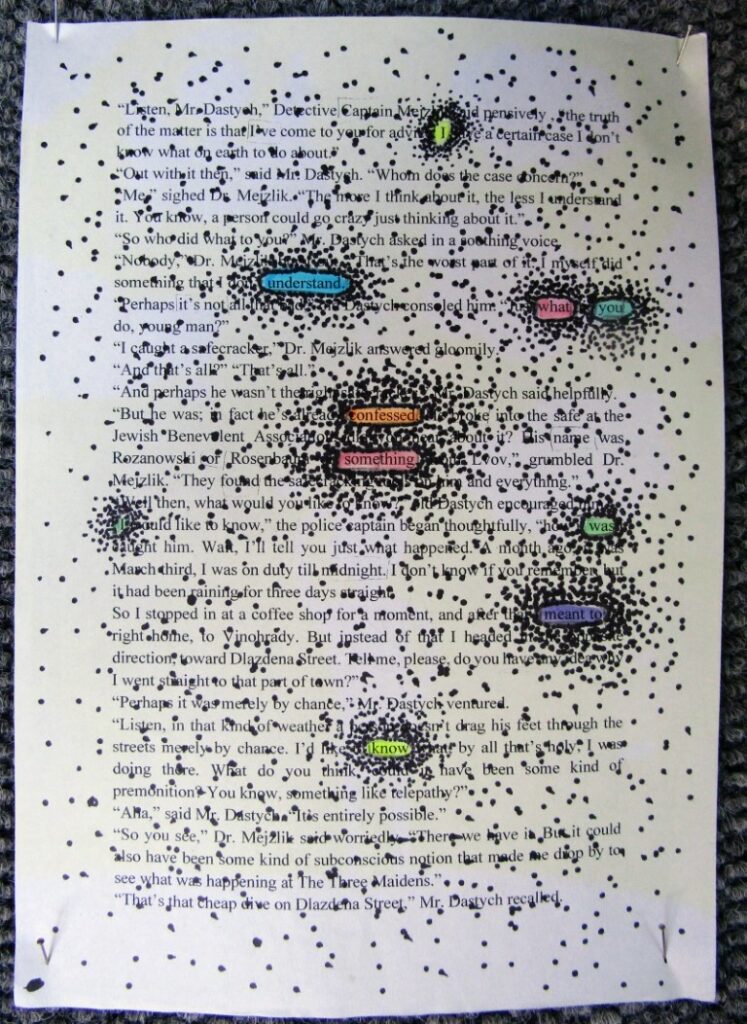 “Listen, Mr. Dastych,” Detective Captain Mejzlik said pensively , “the truth
of the matter is that I’ve come to you for I a certain case I don’t
know what on earth to do about.”
“Out with it then,” said Mr. Dastych. “Whom does the case concern?”
“Me,” sighed Dr. Mejzlik. “The more I think about it, the less I understand
it. You know, a person could go crazy just thinking about it.”
“So who did what to you?” Mr. Dastych asked in a soothing voice.
“Nobody,” Dr. Mejzlik That’s the worst part of it. I myself did
something that I don’t understand.”
“Perhaps it’s not all that Dastych consoled him. what you
do, young man?”
“I caught a safecracker,” Dr. Mejzlik answered gloomily.
“And that’s all?” “That’s all.”
“And perhaps he wasn’t the right Mr. Dastych said helpfully.
“But he was; in fact he’s already confessed. He broke into the safe at the
Jewish Benevolent Association about it? His name was
Rozanowski or Rosenbaum something from Lvov,” grumbled Dr.
Mejzlik. “They found the safecracking on him and everything.”
“Well then, what would you like to know?” old Dastych encouraged him.
“I would like to know,” the police captain began thoughtfully, “how I was
caught him. Wait, I’ll tell you just what happened. A month ago, it was
March third, I was on duty till midnight. I don’t know if you remember, but
it had been raining for three days straight.
So I stopped in at a coffee shop for a moment, and after that meant to
right home, to Vinohrady. But instead of that I headed in the opposite
direction, toward Dlazdena Street. Tell me, please, do you have any idea why
I went straight to that part of town?”
“Perhaps it was merely by chance,” Mr. Dastych ventured.
“Listen, in that kind of weather a person doesn’t drag his feet through the
streets merely by chance. I’d like to know what, by all that’s holy, I was
doing there. What do you think, could it have been some kind of
premonition? You know, something like telepathy?”
“Aha,” said Mr. Dastych. “It’s entirely possible.”
“So you see,” Dr. Mejzlik said worriedly. “There we have it. But it could
also have been some kind of subconscious notion that made me drop by to
see what was happening at The Three Maidens.”
“That’s that cheap dive on Dlazdena Street,” Mr. Dastych recalled.